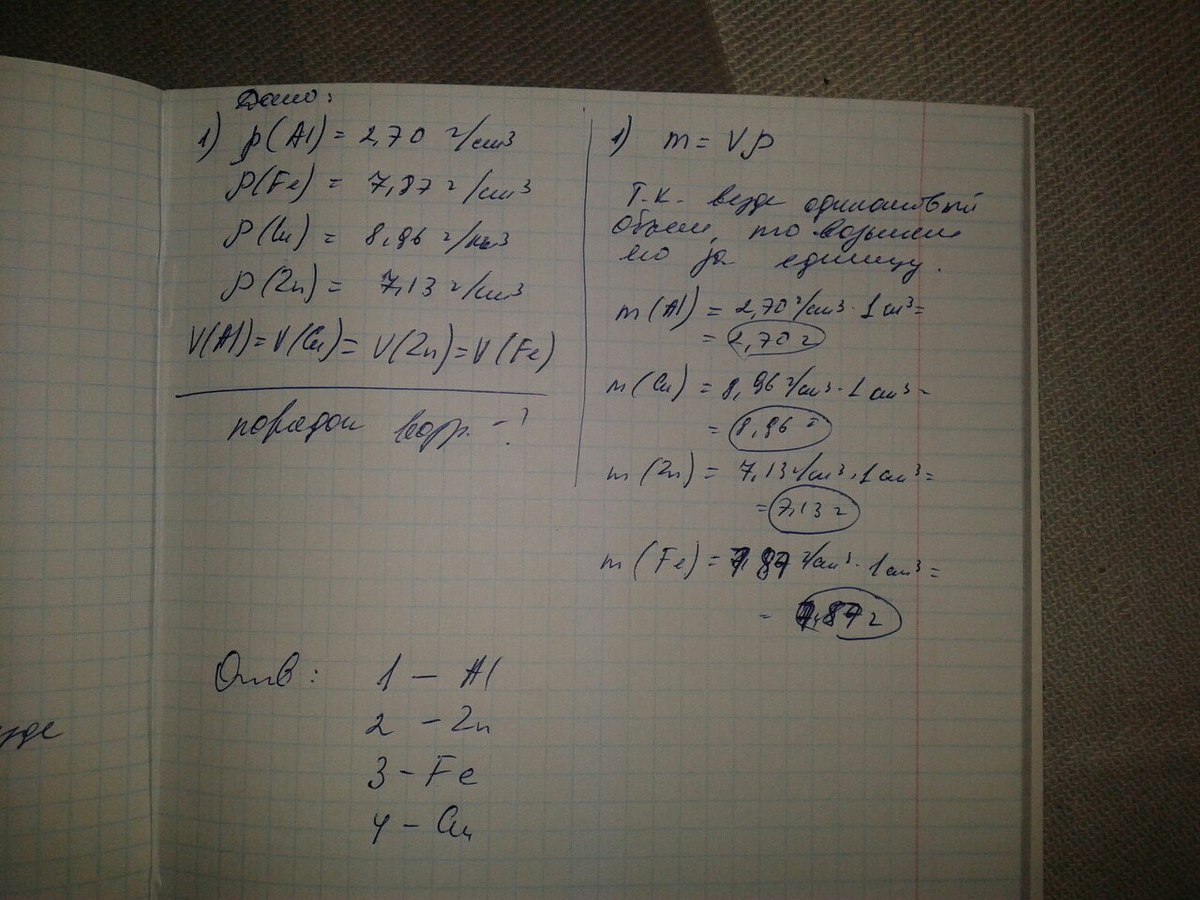 Дано:
1) ρ(Al) = 2,70 г/см3
ρ(Fe) = 7,87 г/см3
ρ(Cu) = 8,96 г/см3
ρ(Zn) = 7,13 г/см3
V(Al)=V(Cu)= V(Zn)=V(Fe)
порядок возр. -?
1) m = Vρ
Т.к. везде одинаковый
объем, то возьмем
его за единицу.
m(Al) = 2,70 г/см3 · 1 см3 =
= 2,70 г
m(Cu) = 8,96 г/см3 · 1 см3 =
= 8,96 г
m(Zn) = 7,13 г/см3 · 1 см3 =
= 7,13 г
m(Fe) = 7,87 г/см3 · 1 см3 =
= 7,87 г
Отв: 1 – Al
2 – Zn
3 – Fe
4 – Cu